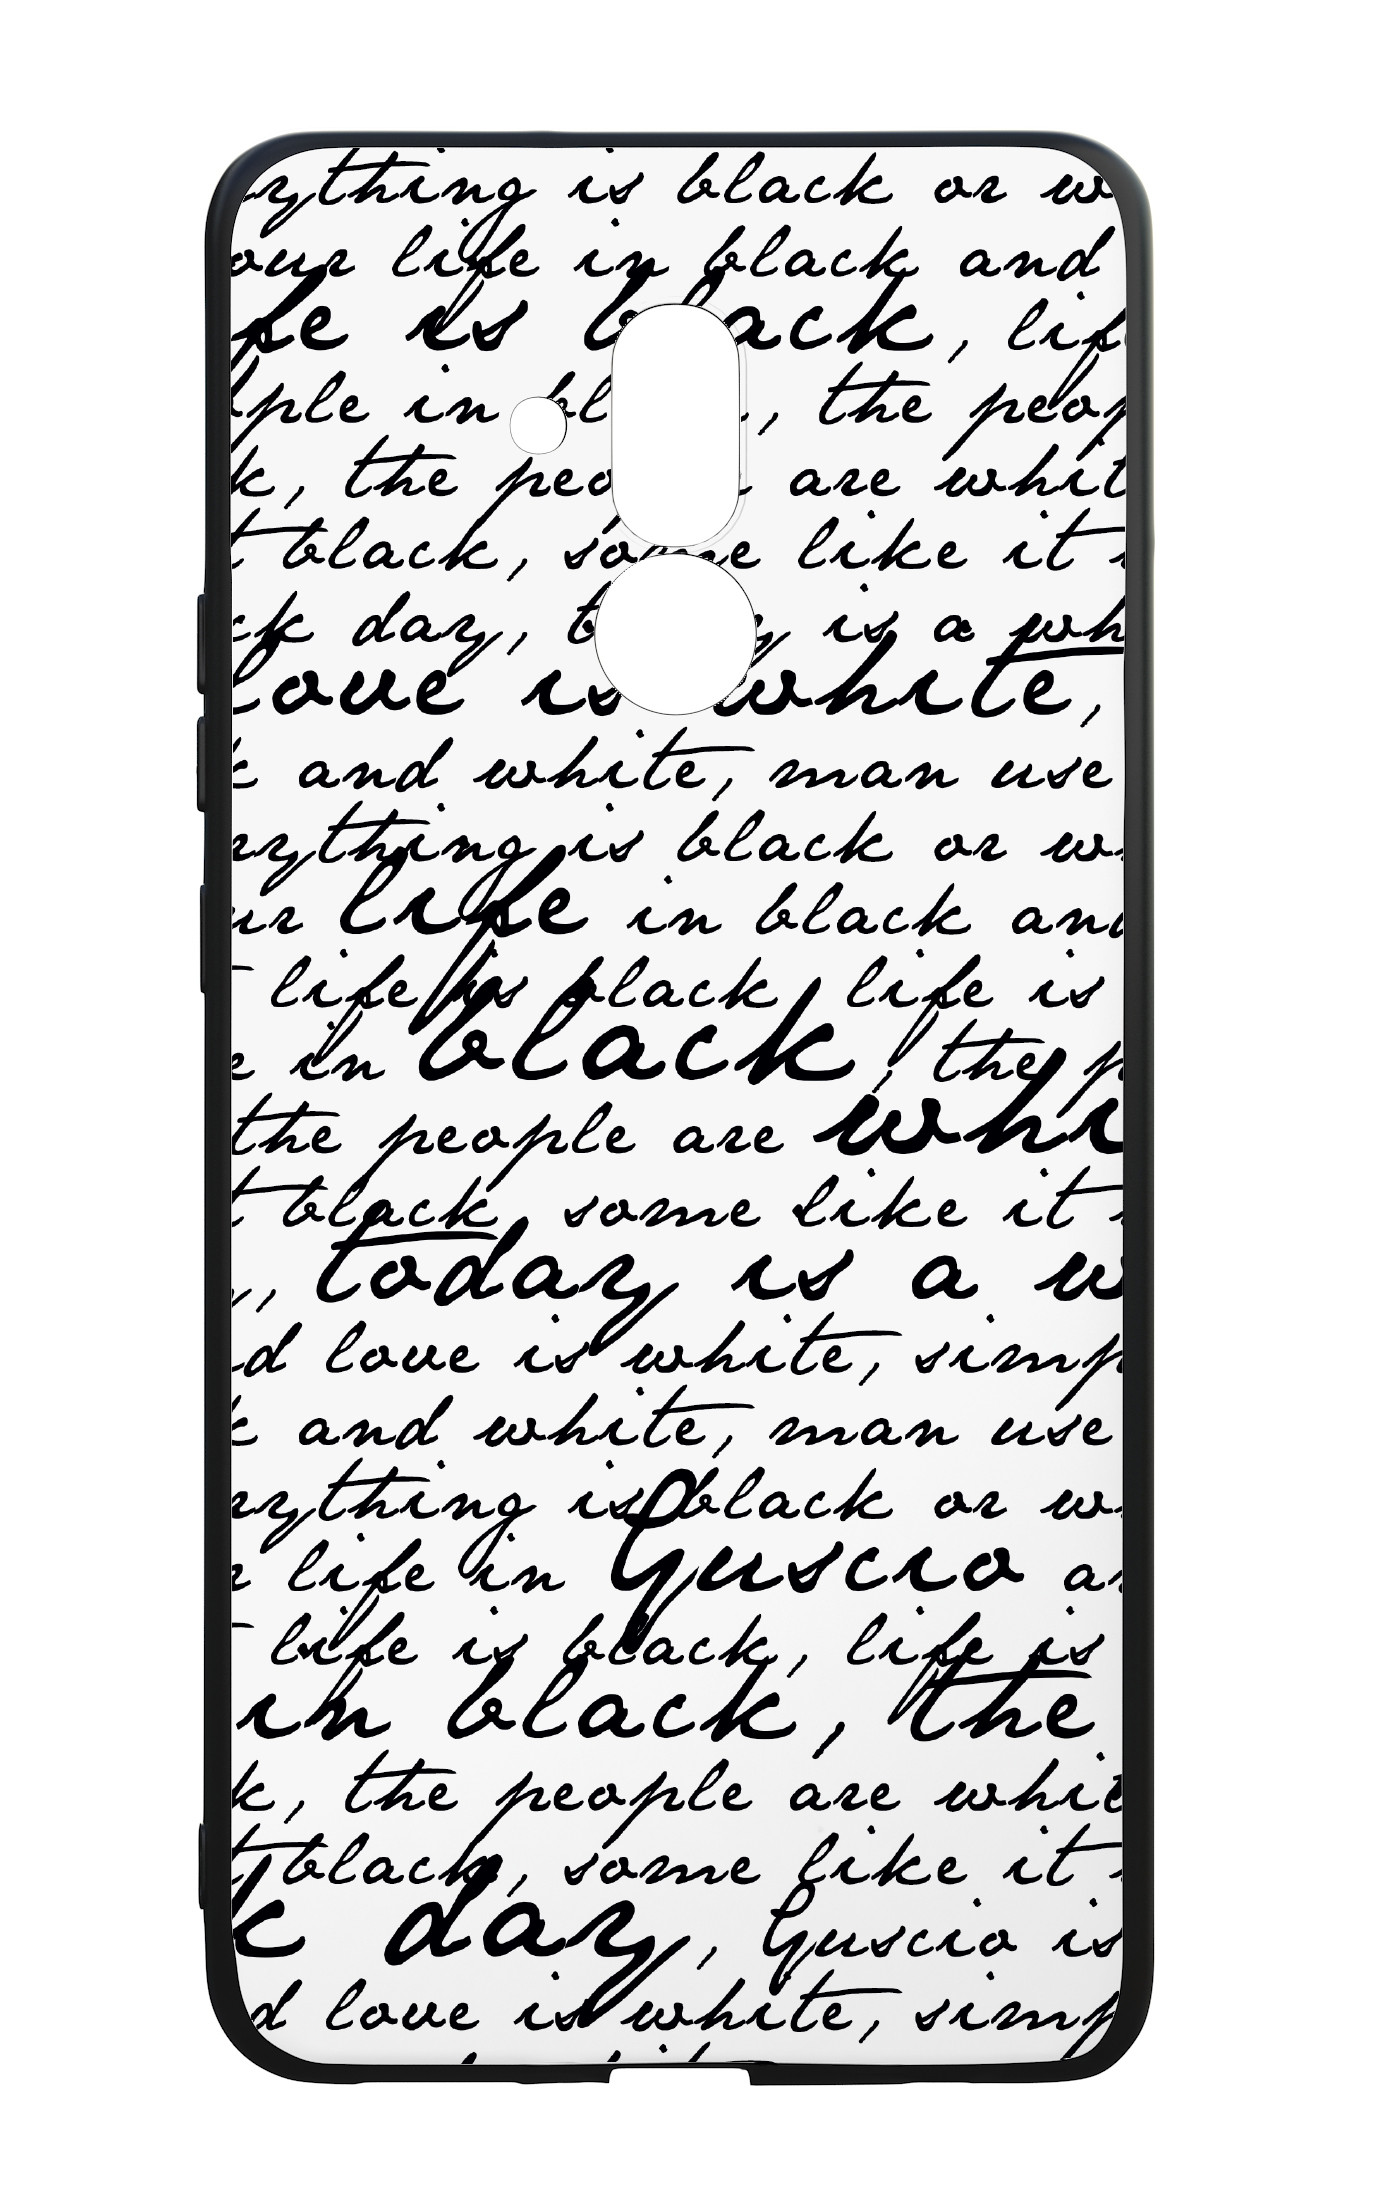 rything is black or w
our life in black and
fe is black, lif
ple in bl , the peop
k, the peo are whit
t black, some like it
ck day, t y is a wh
love is white,
k and white, man use
rything is black or w
ur life in black and
life is black, life is
e in black, the p
the people are whi
t black, some like it
, today is a w
d love is white, simp
k and white, man use
rything is black or w
r life in Guscio an
life is black, life is
in black, the
k, the people are whit
t black, some like it
k day, Guscio is
d love is white, simp